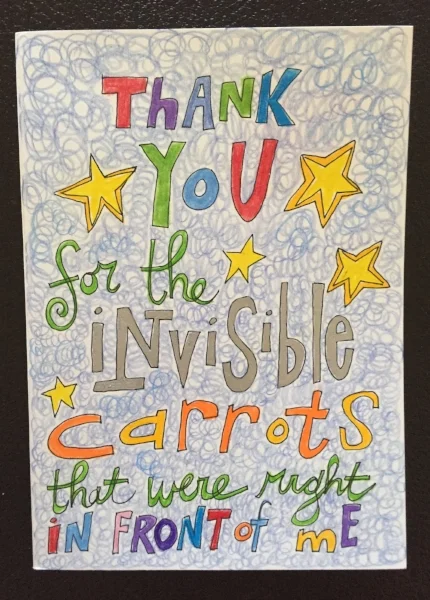 ThANK
YoU
for the
iNviSible
carrots
that were right
iN FRONT of mE